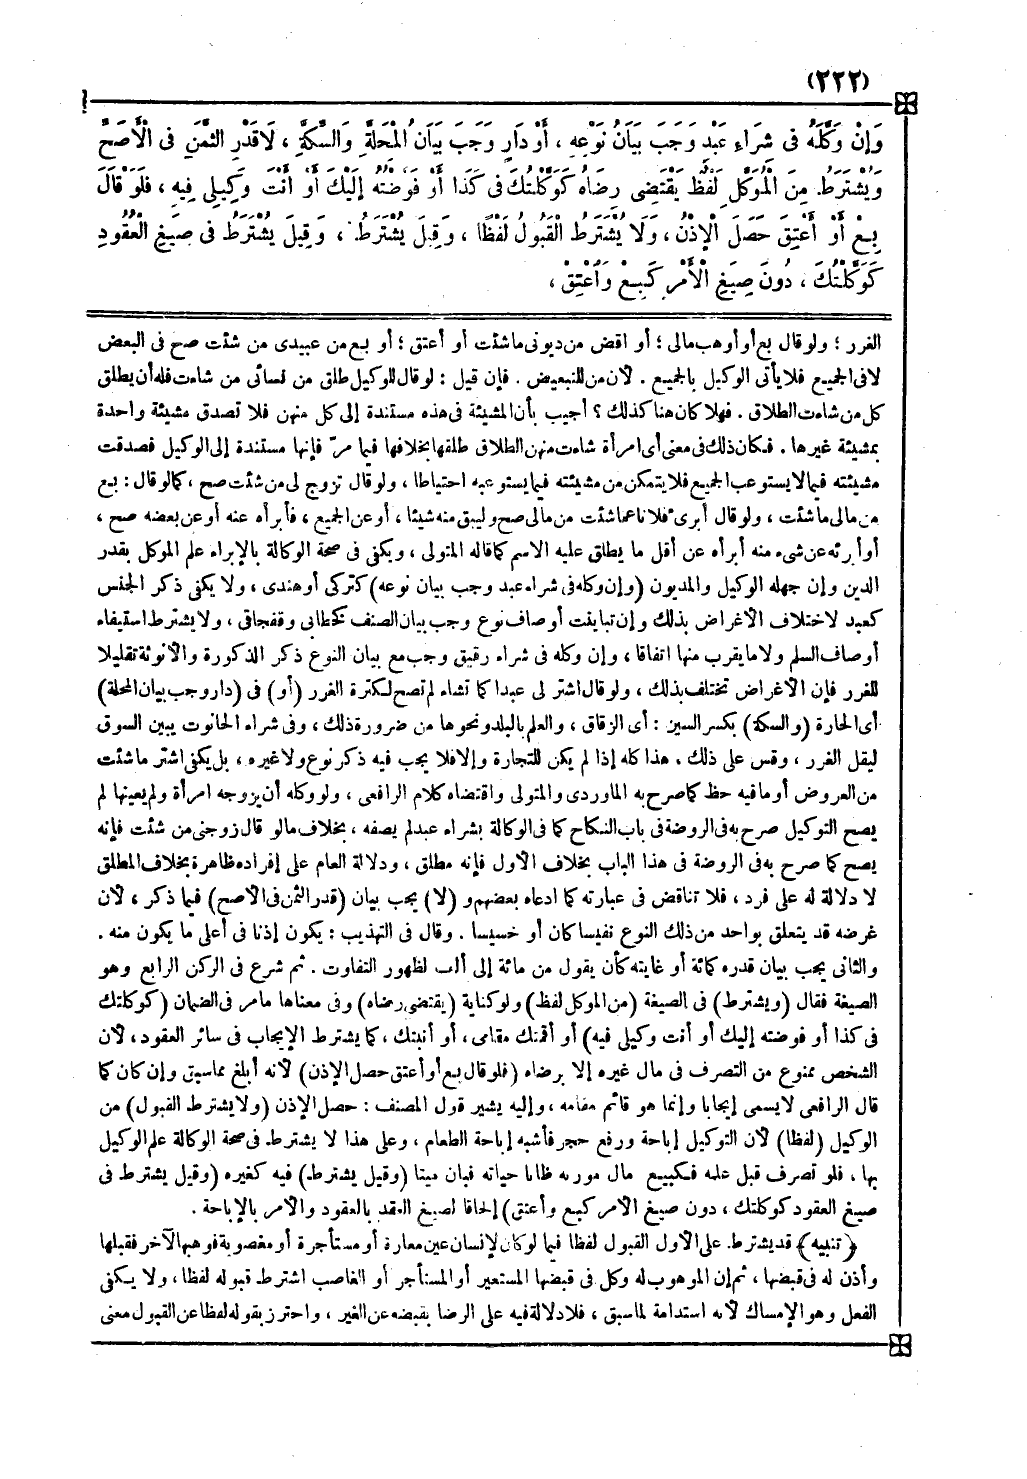 (٢٢٢)
وَإِنْ وَكَّلَهُ فِى شِرَاءِ عَبْدٍ وَجَبَ بَيَانُ نَوْعِهِ ، أَوْ دَارٍ وَجَبَ بَيَانُ الْمَحَلَّةِ وَالسِّكَّةِ ، لَا قَدْرِ الثَّمَنِ فِى الْأَصَحِّ
وَيُشْتَرَطُ مِنَ الْمُوَكِّلِ لَفْظٌ يَقْتَضِى رِضَاهُ كَوَكَّلْتُكَ فِى كَذَا أَوْ فَوَّضْتُهُ إِلَيْكَ أَوْ أَنْتَ وَكِيلِى فِيهِ ، فَلَوْ قَالَ
بِعْ أَوْ أَعْتِقْ حَصَلَ الْإِذْنُ ، وَلَا يُشْتَرَطُ الْقَبُولُ لَفْظًا ، وَقِيلَ يُشْتَرَطُ ، وَقِيلَ يُشْتَرَطُ فِى صِيَغِ الْعُقُودِ
كَوَكَّلْتُكَ ، دُونَ صِيَغِ الْأَمْرِ كَبِعْ وَأَعْتِقْ ،
الغرر ؛ ولو قال بع أو أوهب مالى ؛ أو اقض من ديونى ماشئت أو أعتق ؛ أو بع من عبيدى من شئت صح فى البعض
لا فى الجميع فلا يأتى الوكيل بالجميع . لأن من للتبعيض . فإن قيل : لو قال للوكيل طلق من نسائى من شاءت فله أن يطلق
كل من شاءت الطلاق . فهلا كان هنا كذلك ؟ أجيب بأن المشيئة فى هذه مستندة إلى كل منهن فلا تصدق مشيئة واحدة
بمشيئة غيرها . فكان ذلك فى معنى أى امرأة شاءت منهن الطلاق طلقها بخلافها فيما مرّ فإنها مستندة إلى الوكيل فصدقت
مشيئته فيما لا يستوعب الجميع فلا يتمكن من مشيئته فيما يستوعبه احتياطا ، ولو قال تزوج لى من شئت صح ، كما لو قال : بع
من مالى ما شئت ، ولو قال أبرئ فلانا عما شئت من مالى صح وليبق منه شيئا ، أو عن الجميع ، فأبرأه عنه أو عن بعضه صح ،
أو أبرئه عن شىء منه أبرأه عن أقل ما يطلق عليه الاسم كما قاله المتولى ، ويكفى فى صحة الوكالة بالإبراء علم الموكل بقدر
الدين وإن جهله الوكيل والمديون (وإن وكله فى شراء عبد وجب بيان نوعه) كتركى أو هندى ، ولا يكفى ذكر الجنس
كعبد لاختلاف الأغراض بذلك وإن تباينت أوصاف نوع وجب بيان الصنف كخطائى وقفجاقى ، ولا يشترط استيفاء
أوصاف السلم ولا ما يقرب منها اتفاقا ، وإن وكله فى شراء رقيق وجب مع بيان النوع ذكر الذكورة والأنوثة تقليلا
للغرر فإن الأغراض تختلف بذلك ، ولو قال اشتر لى عبدا كما تشاء لم تصح لكثرة الغرر (أو) فى (دار وجب بيان المحلة)
أى الحارة (والسكة) بكسر السين : أى الزقاق ، والعلم بالبلد ونحوها من ضرورة ذلك ، وفى شراء الحانوت يبين السوق
ليقل الغرر ، وقس على ذلك . هذا كله إذا لم يكن للتجارة وإلا فلا يجب فيه ذكر نوع ولا غيره ، بل يكفى اشتر ما شئت
من العروض أو ما فيه حظ كما صرح به الماوردى والمتولى واقتضاه كلام الرافعى ، ولو وكله أن يزوجه امرأة ولم يعينها لم
يصح التوكيل صرح به فى الروضة فى باب النكاح كما فى الوكالة بشراء عبد لم يصفه ، بخلاف ما لو قال زوجنى من شئت فإنه
يصح كما صرح به فى الروضة فى هذا الباب بخلاف الأول فإنه مطلق ، ودلالة العام على إفراده ظاهرة بخلاف المطلق
لا دلالة له على فرد ، فلا تناقض فى عبارته كما ادعاه بعضهم و (لا) يجب بيان (قدر الثمن فى الأصح) فيما ذكر ، لأن
غرضه قد يتعلق بواحد من ذلك النوع نفيسا كان أو خسيسا . وقال فى التهذيب : يكون إذنا فى أعلى ما يكون منه .
والثانى يجب بيان قدره كمائة أو غايته كأن يقول من مائة إلى ألف لظهور التفاوت . ثم شرع فى الركن الرابع وهو
الصيغة فقال (ويشترط) فى الصيغة (من الموكل لفظ) ولو كناية (يقتضى رضاه) وفى معناها مامر فى الضمان (كوكلتك
فى كذا أو فوضته إليك أو أنت وكيلى فيه) أو أقمتك مقامى ، أو أنبتك ، كما يشترط الإيجاب فى سائر العقود ، لأن
الشخص ممنوع من التصرف فى مال غيره إلا برضاه (فلو قال بع أو أعتق حصل الإذن) لأنه أبلغ مما سبق وإن كان كما
قال الرافعى لا يسمى إيجابا وإنما هو قائم مقامه ، وإليه يشير قول المصنف : حصل الإذن (ولا يشترط القبول) من
الوكيل (لفظا) لأن التوكيل إباحة ورفع حجر فأشبه إباحة الطعام ، وعلى هذا لا يشترط فى صحة الوكالة علم الوكيل
بها ، فلو تصرف قبل علمه فكبيع مال مورثه ظانا حياته فبان ميتا (وقيل يشترط) فيه كغيره (وقيل يشترط فى
صيغ العقود كوكلتك ، دون صيغ الأمر كبع وأعتق) إلحاقا لصيغ العقد بالعقود والأمر بالإباحة .
﴿تنبيه﴾ قد يشترط على الأول القبول لفظا فيما لو كان لإنسان عين معارة أو مستأجرة أو مغصوبة فوهبها لآخر فقبلها
وأذن له فى قبضها ، ثم إن الموهوب له وكل فى قبضها المستعير أو المستأجر أو الغاصب اشترط قبوله لفظا ، ولا يكفى
الفعل وهو الإمساك لأنه استدامة لما سبق ، فلا دلالة فيه على الرضا بقبضه عن الغير ، واحترز بقوله لفظا عن القبول معنى